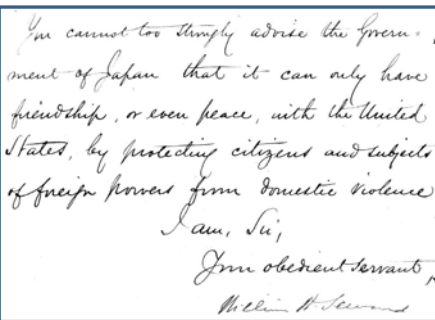 You cannot too strongly advise the Govern-
ment of Japan that it can only have
friendship, or even peace, with the United
States, by protecting citizens and subjects
of foreign powers from domestic violence
I am, Sir,
Your obedient servant,
William H Seward